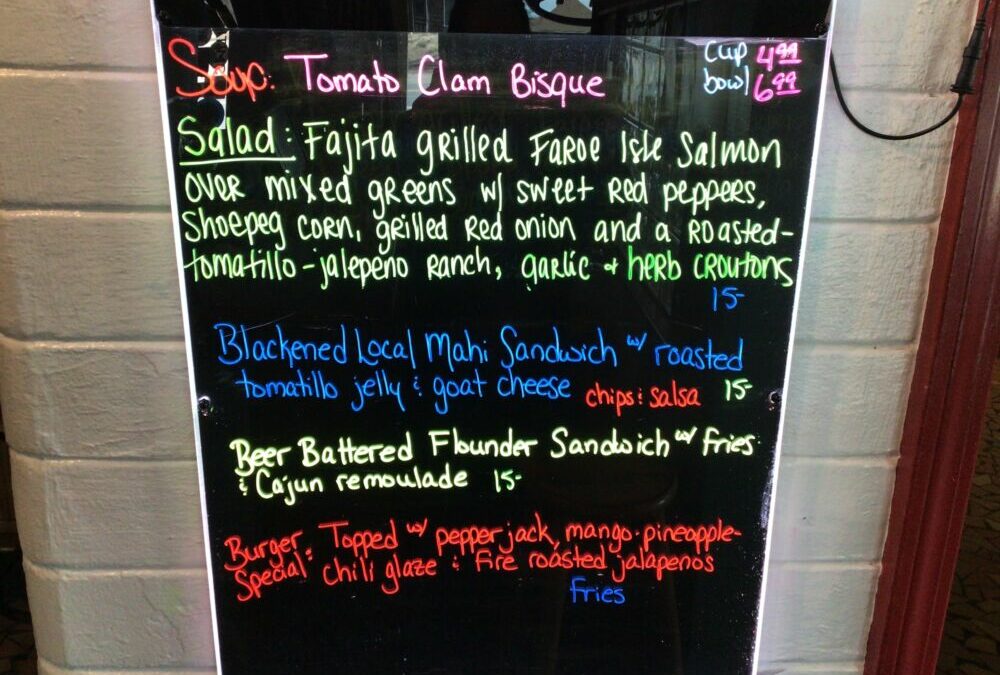 Soup: Tomato Clam Bisque
cup 4.99
bowl 6.99
Salad: Fajita grilled Faroe Isle Salmon
over mixed greens w/ sweet red peppers,
Shoepeg corn, grilled red onion and a roasted-
tomatillo-jalepeno ranch, garlic & herb croutons
15-
Blackened Local Mahi Sandwich w/ roasted
tomatillo jelly & goat cheese chips & salsa 15-
Beer Battered Flounder Sandwich w/ fries
& Cajun remoulade 15-
Burger Special: Topped w/ pepper jack, mango-pineapple-
chili glaze & fire roasted jalapenos
fries